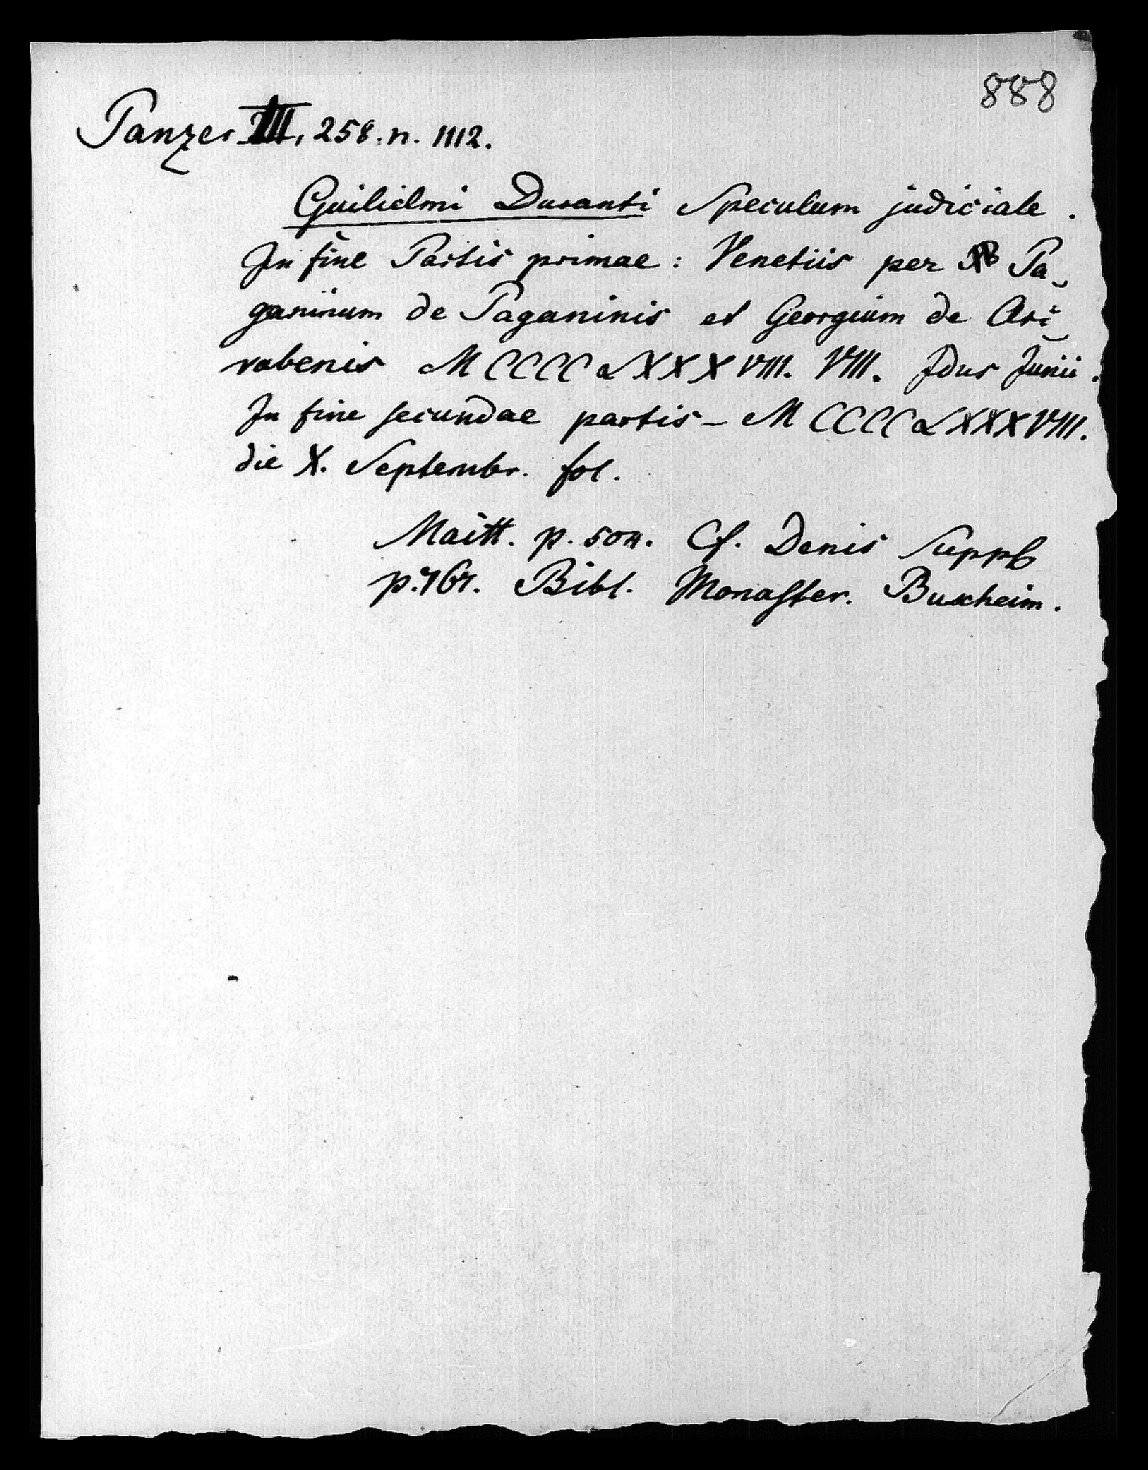 888
Panzer III, 258. n. 1112.
Guilielmi Duranti Speculum judiciale.
In fine Partis primae: Venetiis per Pa-
ganinum de Paganinis et Georgium de Arri-
vabenis MCCCCLXXXVIII. VIII. Idus Junii.
In fine secundae partis - MCCCCLXXXVIII.
die X. Septembr. fol.
Maitt. p. 504. Cf. Denis Suppl
p. Bibl. Monaster. Buxheim.